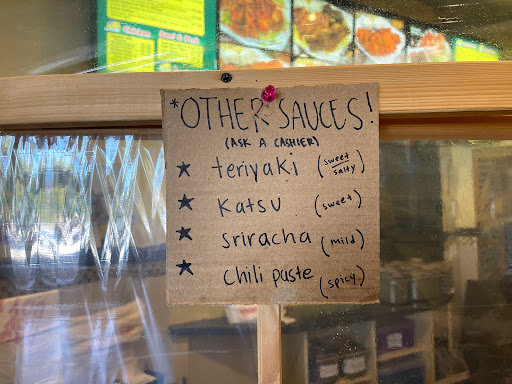 Chicken
Beef & Pork
*OTHER SAUCES!
(ASK A CASHIER)
★ teriyaki (sweet/salty)
★ Katsu (sweet)
★ Sriracha (mild)
★ Chili paste (spicy)